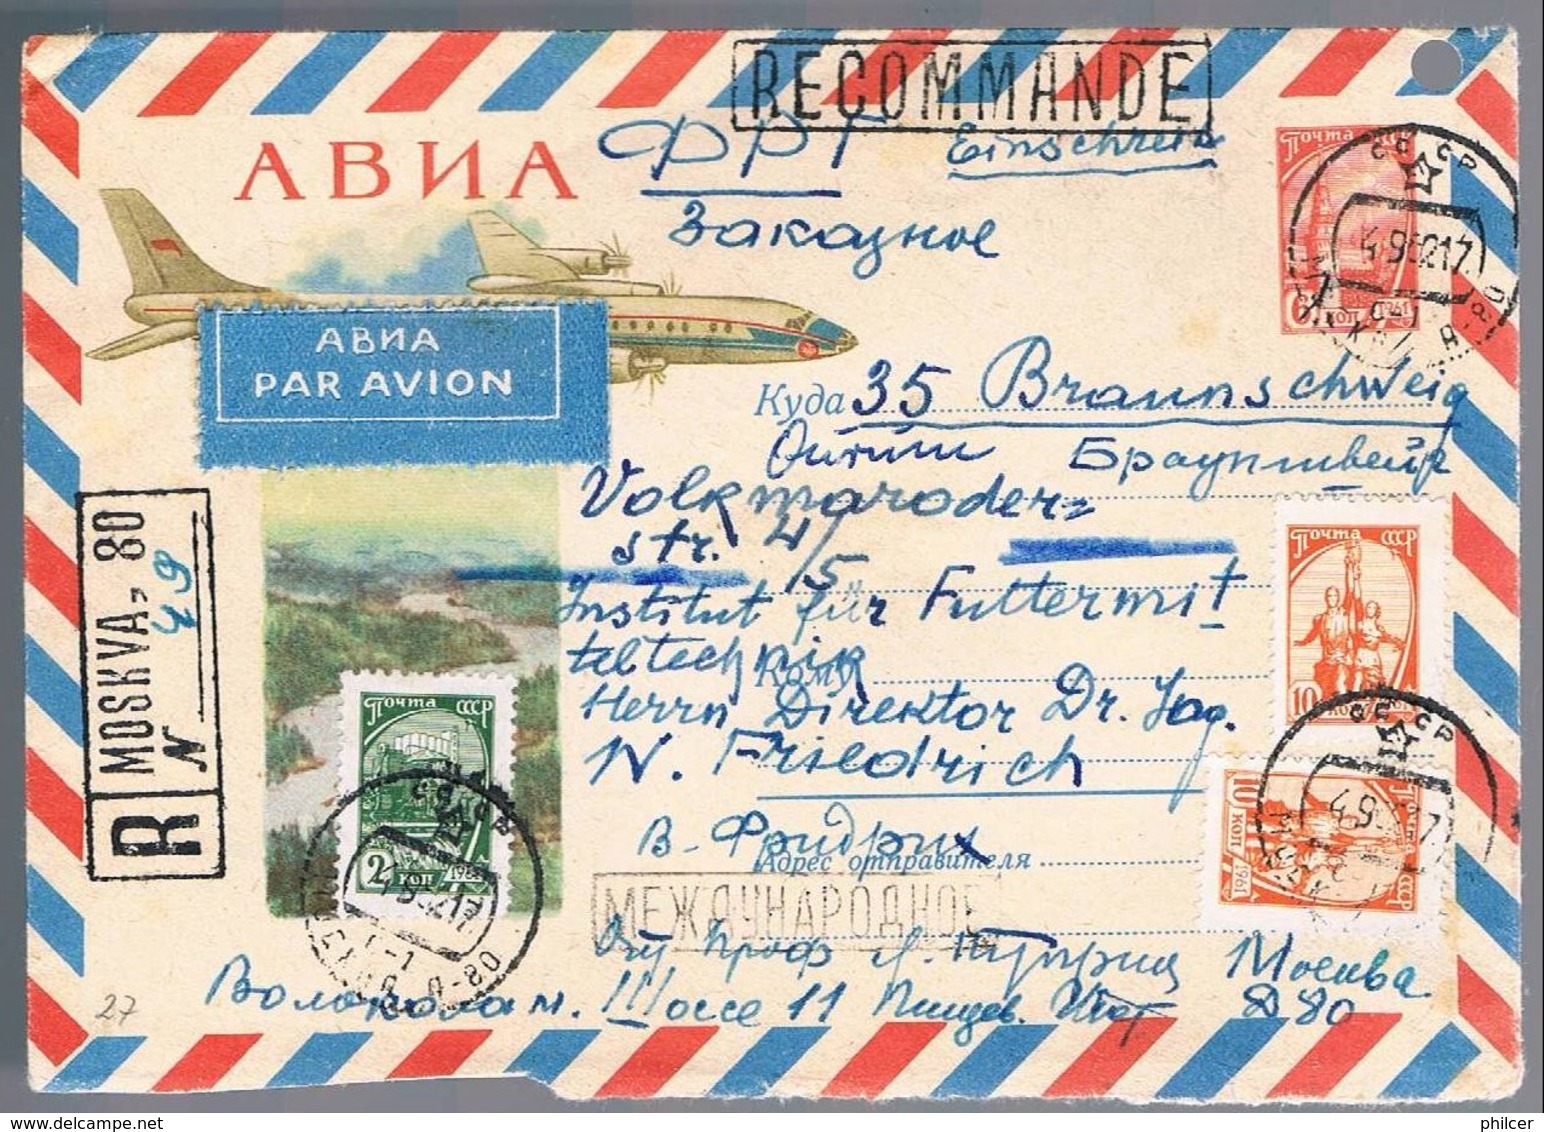 RECOMMANDE
АВИА
ФРГ Einschreib
Заказное
Почта СССР
6 КОП 1961
СССР
4962 17
АВИА
PAR AVION
Куда 35 Braunschweig
Брауншвейг
Volkmaroder=
str. 4/5
Institut für Futtermit
teltechnik
Кому
Herrn Direktor Dr. Jng.
W. Friedrich
В. Фридрих
Адрес отправителя
МЕЖДУНАРОДНОЕ
Проф Москва
Волоколам. Шоссе 11 Пищев. Д 80
R MOSKVA, 80
N 49
Почта СССР
10 КОП 1961
СССР
Почта СССР
10 КОП 1961
Почта СССР
2 КОП 196
СССР
27
philcer